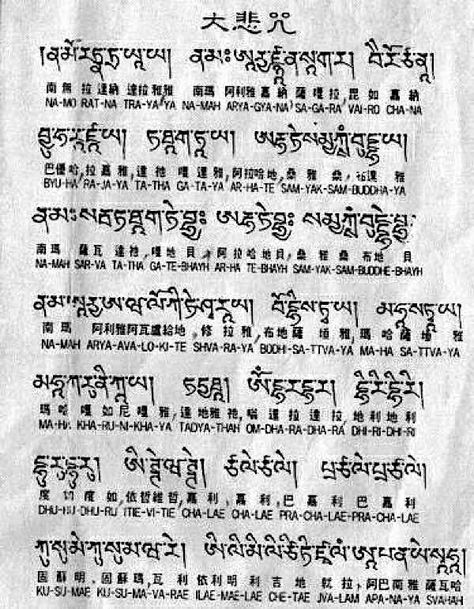 大悲咒
།ནམོརཏྣཏྲཡཱཡ། ནམཿཨཱརྱཛྙཱནསཱགར། བཻརོཙན།
南無 拉達納 達拉雅雅 南瑪 阿利雅嘉納 薩嘎拉,毘如 嘉納
NA-MO RAT-NA TRA-YA-YA NA-MAH ARYA-GYA-NA SA-GA-RA, VAI-RO CHA-NA
བྱཱུཧརཱཛཱཡ། ཏཐཱགཏཱཡ། ཨརྷཏེསམྱཀྶཾབུདྡྷཱཡ།
巴優哈,拉嘉雅,達他 嘎達雅,阿拉哈地,桑雅 桑,布達 雅
BYU-HA RA-JA-YA TA-THA GA-TA-YA AR-HA-TE SAM-YAK-SAM-BUDDHA-YA
ནམཿསརྦཏཐཱགཏེབྷྱཿ ཨརྷཏེབྷྱཿ སམྱཀྶཾབུདྡྷེབྷྱཿ
南瑪 薩瓦 達祂,嘎地貝,阿拉哈地貝,桑雅 桑 布地 貝
NA-MAH SAR-VA TA-THA GA-TE-BHAYH AR-HA TE-BHAYH SAM-YAK-SAM-BUDDHE-BHAYH
ནམཿཨཱརྱཨཝལོཀིཏེཤྭརཱཡ། བོདྷིསཏྭཱཡ། མཧཱསཏྭཱཡ།
南瑪 阿利雅阿瓦盧給地,修 拉雅,布地薩 埵雅,瑪哈薩 埵 雅
NA-MAH ARYA-AVA-LO-KI-TE SHVA-RA-YA BODHI-SA-TTVA-YA MA-HA SA-TTVA-YA
མཧཱཀརུཎིཀཱཡ། ཏདྱཐཱ། ཨོཾདྷརདྷར། དྷིརིདྷིརི།
瑪哈 嘎如尼嘎雅,達地雅祂,嗡 達拉 達拉,地利 地利
MA-HA KHA-RU-NI-KHA-YA TADYA-THAH OM-DHA-RA-DHA-RA DHI-RI-DHI-RI
དྷུརུདྷུརུ། ཨིཊྚེཝཊྚེ། ཙལེཙལེ། པྲཙལེཔྲཙལེ།
度如 度如,依哲維哲,嘉利,嘉利,巴 嘉利 巴 嘉利
DHU-RU-DHU-RU ITIE-VI-TIE CHA-LAE CHA-LAE PRA-CHA-LAE-PRA-CHA-LAE
ཀུསུམེཀུསུམཝརེ། ཨིལིམིལིཙིཏིཛྭལཾཨཱཔནཡེསྭཱཧཱ།
固蘇明,固蘇瑪,瓦利 依利明利吉 地 乾拉,阿巴南雅薩瓦哈
KU-SU-MAE KU-SU-MA-VA-RAE ILAE-MAE-LAE CHE-TAE JVA-LAM APA-NA-YA SVAHAH